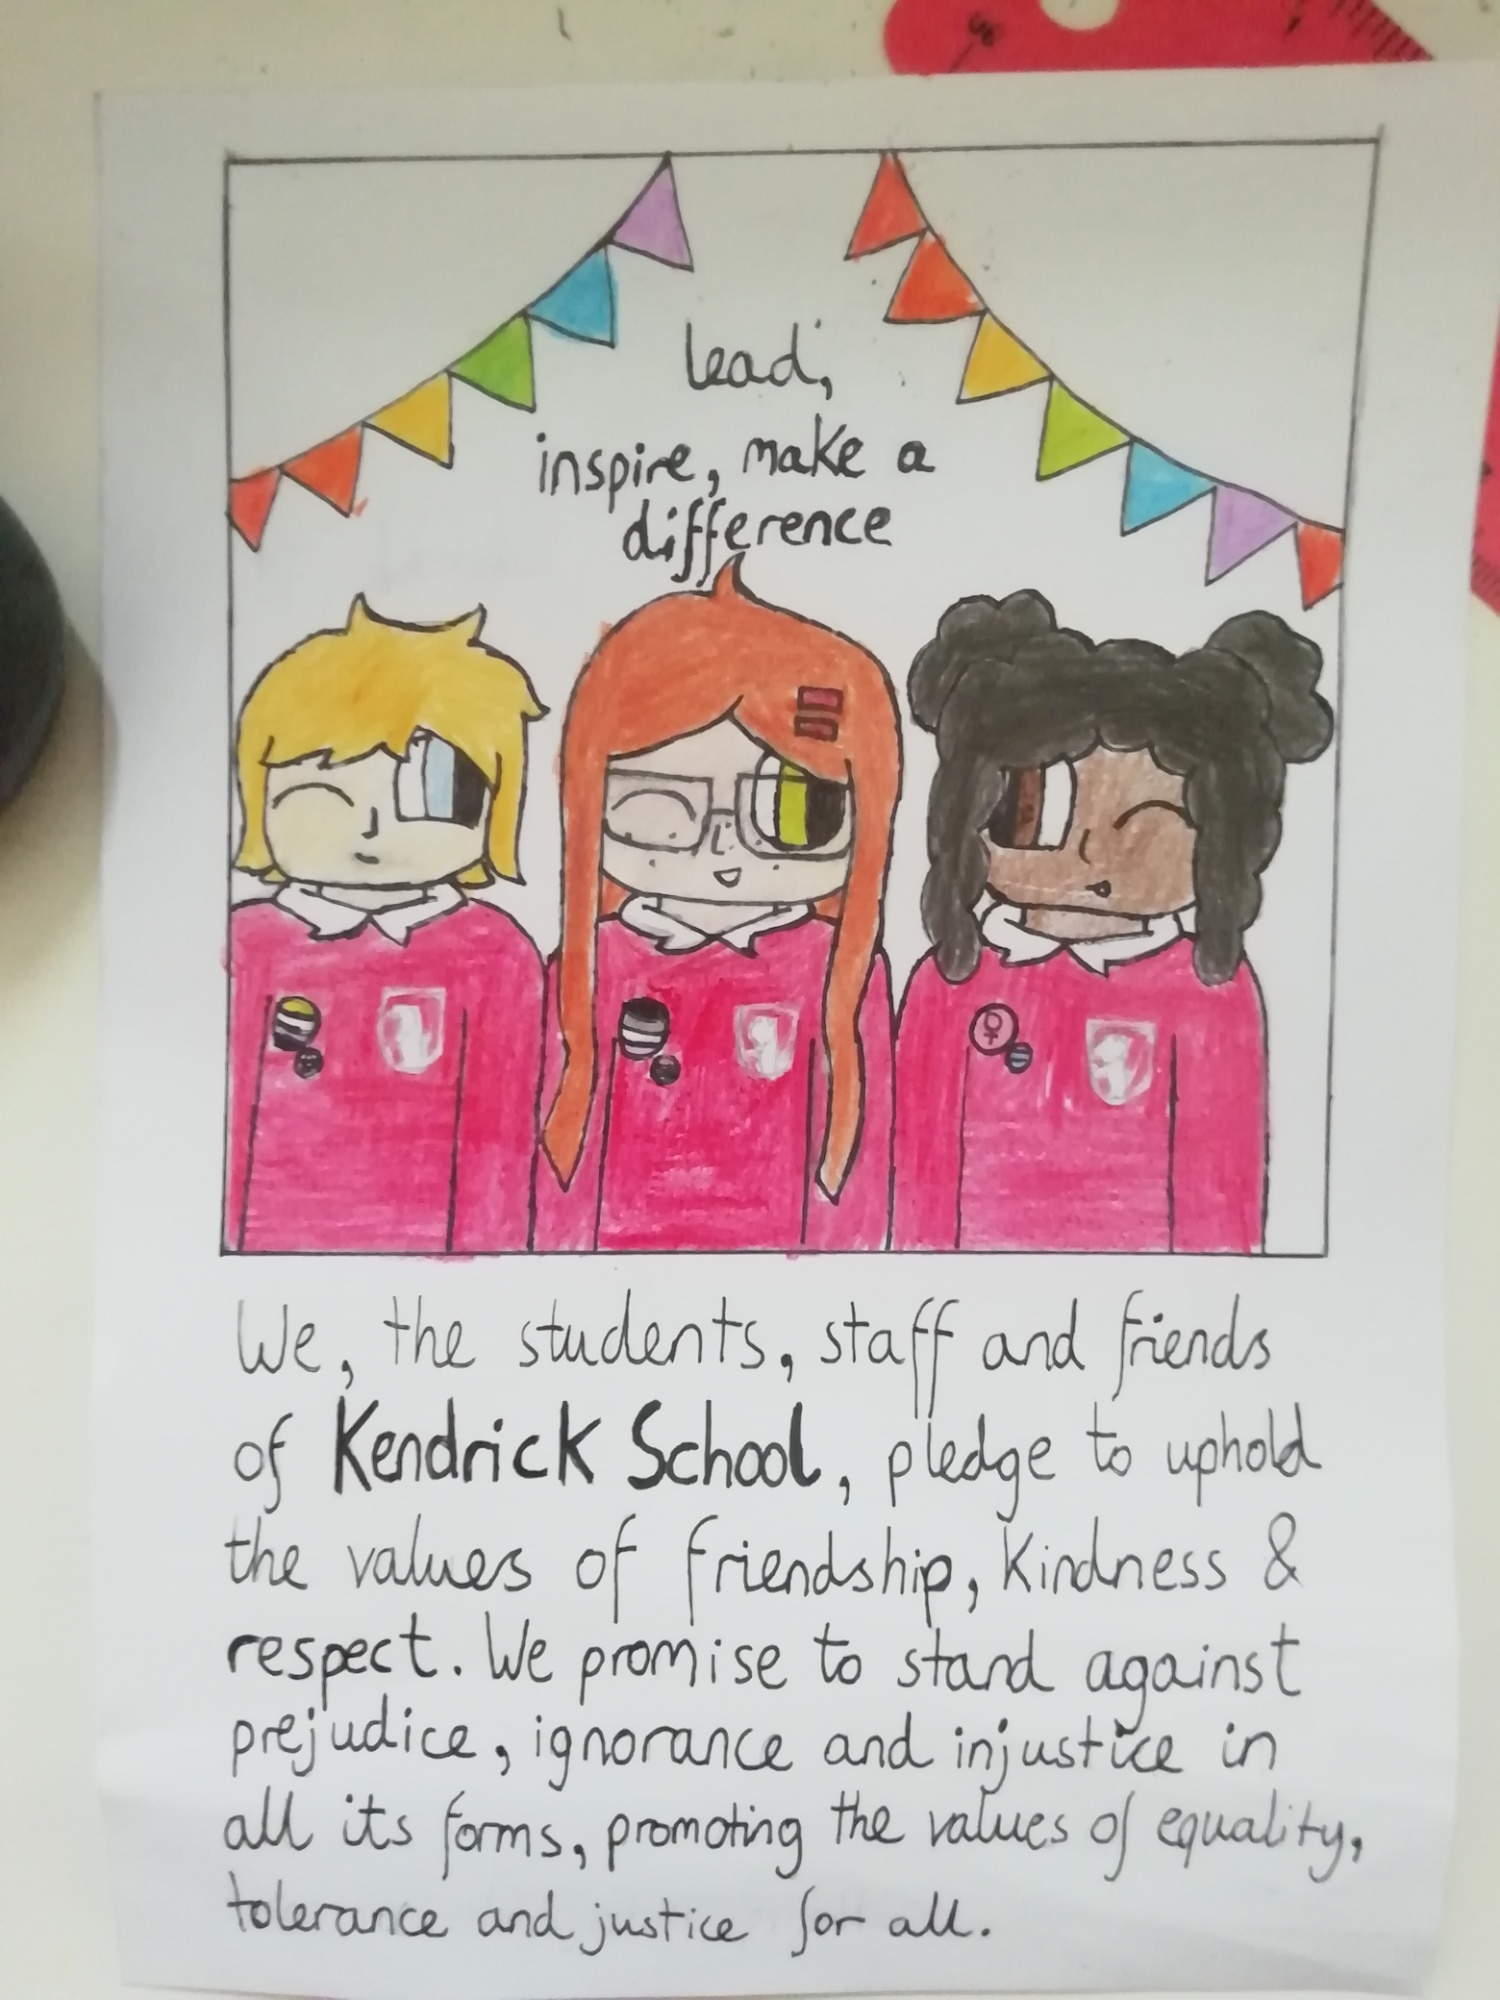 lead,
inspire, make a
difference
We, the students, staff and friends
of Kendrick School, pledge to uphold
the values of friendship, kindness &
respect. We promise to stand against
prejudice, ignorance and injustice in
all its forms, promoting the values of equality,
tolerance and justice for all.